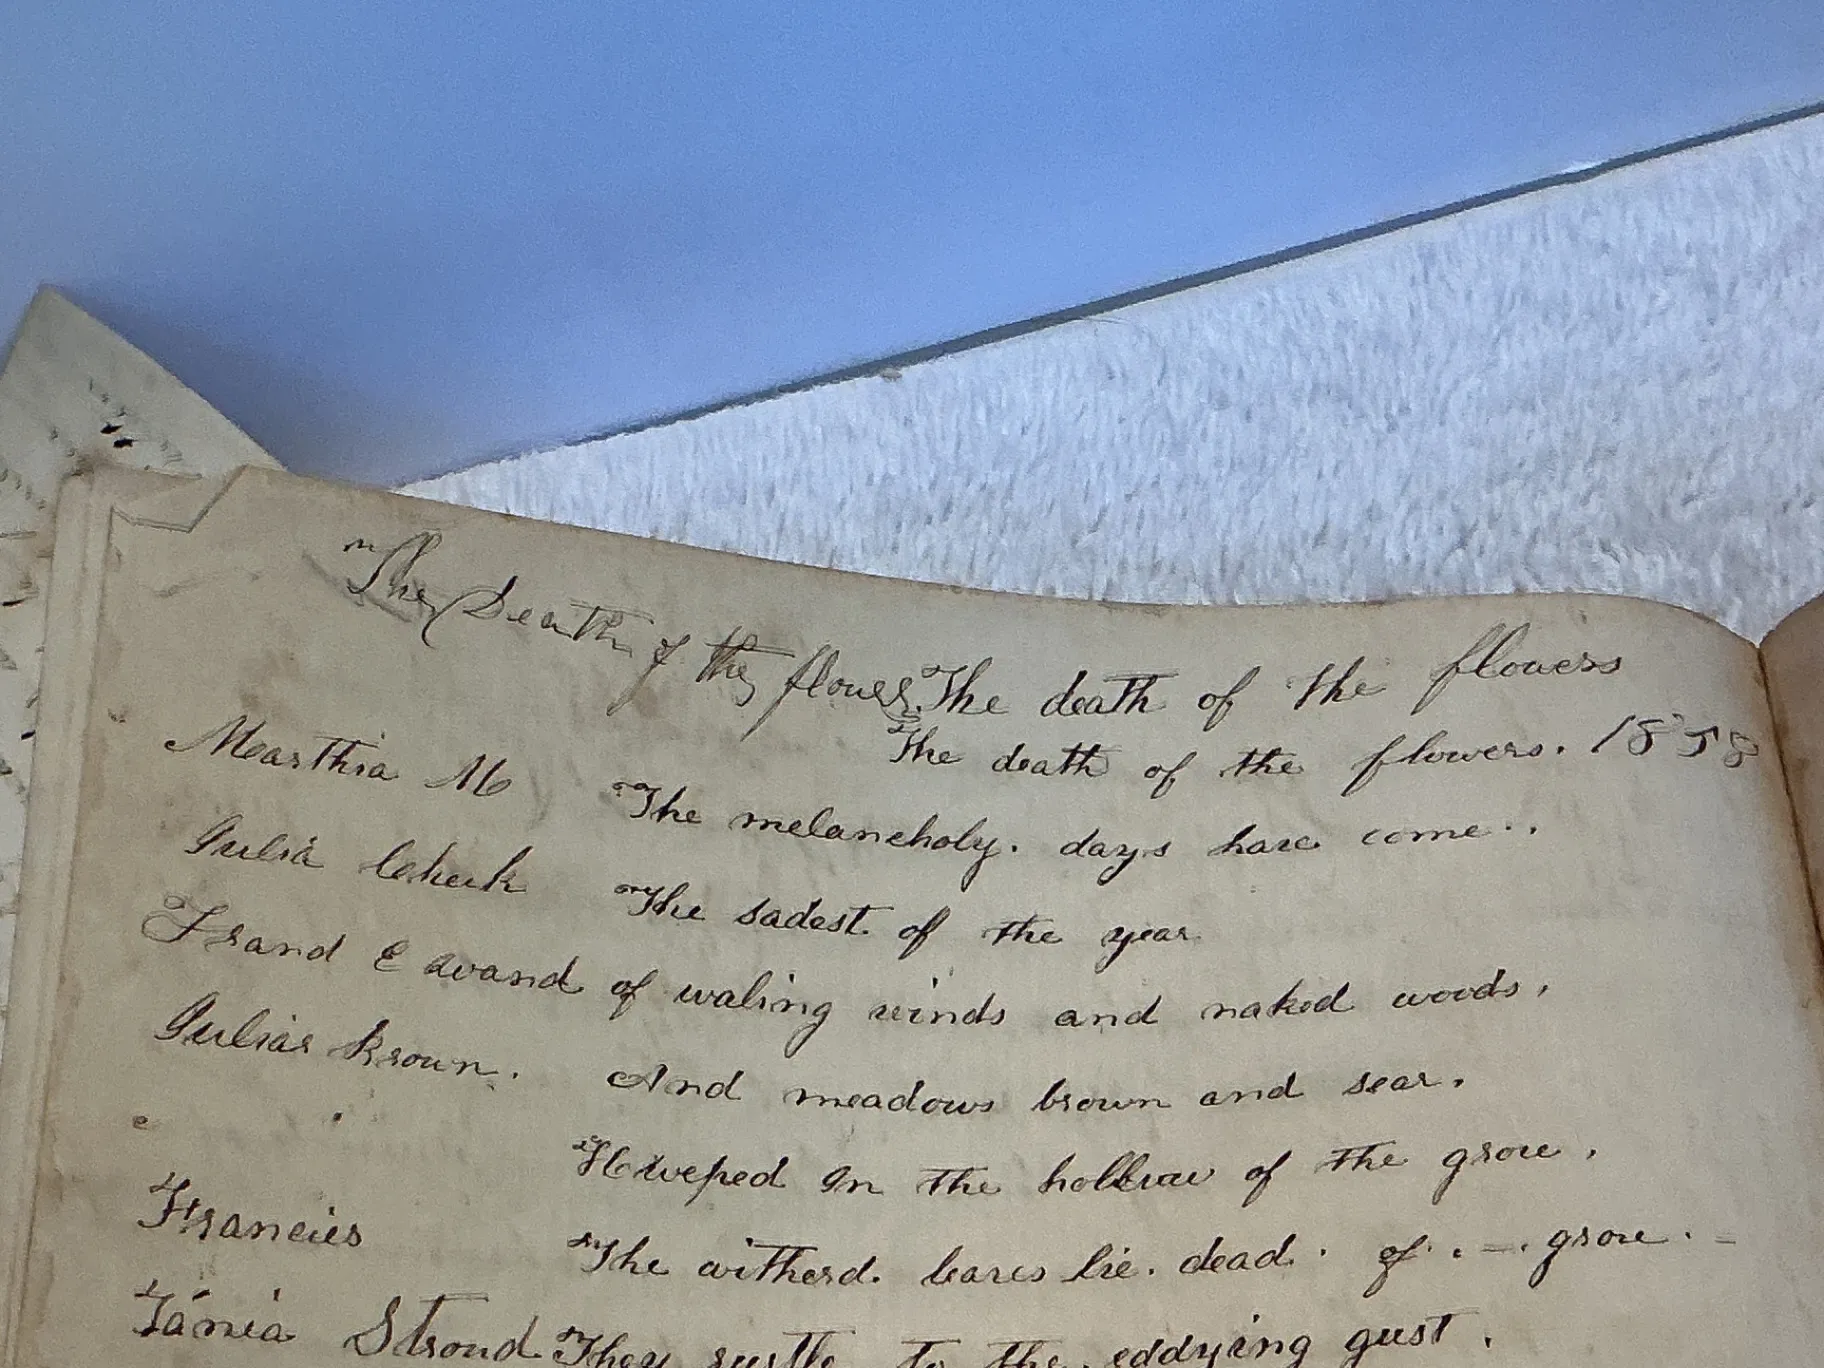 The Death of the flower. The death of the flowers
The death of the flowers. 1858
Marthia M The melancholy. days have come..
Julia Cheek The sadest. of the year
Frand Edvand of waling winds and naked woods,
Julias Brown. And meadows brown and sear.
Heweped in the hollow of the grove,
Francies The witherd. leaves lie. dead. of. - . grove. -
Fánnia Stroud They rustle to the eddying gust.